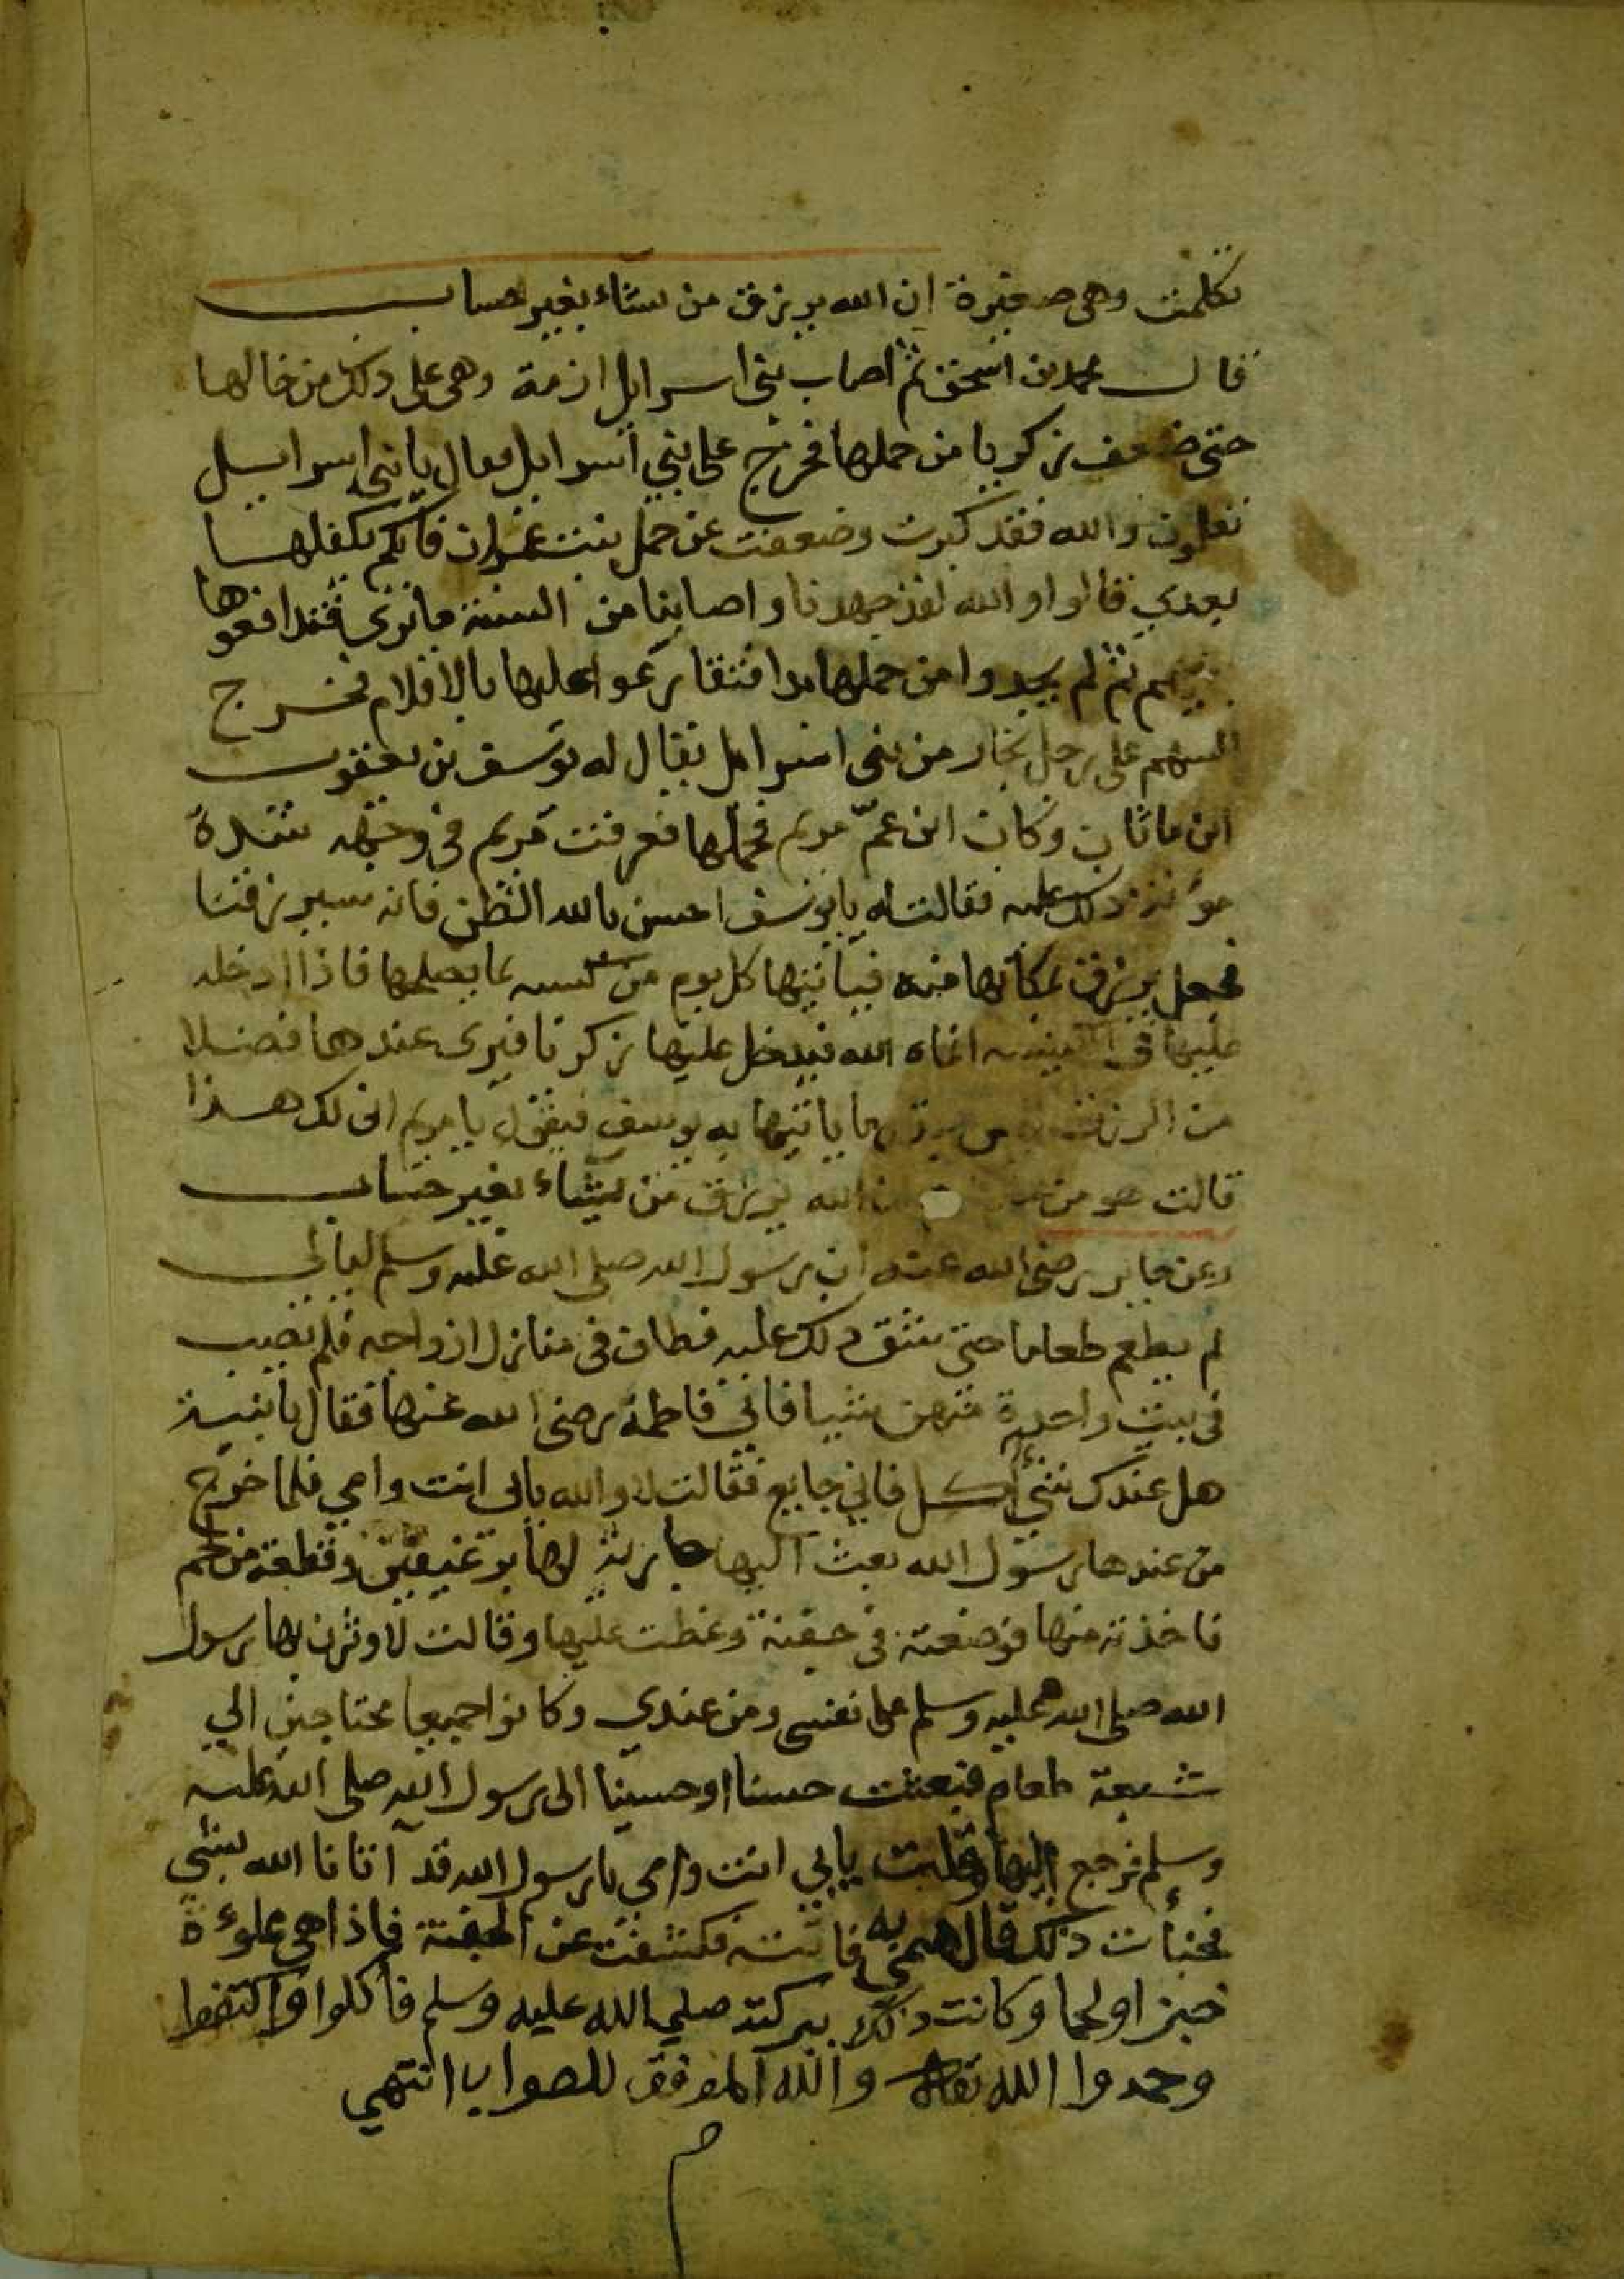 تكلمت وهي صغيرة ان الله يرزق من يشاء بغير حساب
قال محمد بن اسحق ثم اصاب بني اسرايل ازمة وهي على ذلك من حالها
حتى ضعف زكريا من حملها فخرج على بني اسرايل فقال يا بني اسرايل
تعلمون والله فقد كبرت وضعفت عن حمل بنت عمران فايكم يكفلها
بعدي قالوا والله لقد جهدنا واصابنا من السنة ما ترى فتدافعوها
بينهم ثم لم يجدوا من حملها بدا فتقارعوا عليها بالاقلام فخرج
السهم على رجل نجار من بني اسرايل يقال له يوسف بن يعقوب
ابن ماثان وكان ابن عم مريم فحملها فعرفت مريم في وجهه شدة
مؤنة ذلك عليه فقالت له يا يوسف احسن بالله الظن فانه سيرزقنا
فجعل يرزق بمكانها منه فياتيها كل يوم من كسبه بما يصلحها فاذا ادخله
عليها في الكنيسه انماه الله فيدخل عليها زكريا فيرى عندها فضلا
من الرزق ما ياتيها به يوسف فيقول يا مريم انى لك هذا
قالت هو من ان الله يرزق من يشاء بغير حساب
وعن جابر رضي الله عنه ان رسول الله صلى الله عليه وسلم ليالي
لم يطعم طعاما حتى شق ذلك عليه فطاف في منازل ازواجه فلم يصيب
في بيت واحدة منهن شيا فاتى فاطمة رضي الله عنها فقال يا بنية
هل عندك شيء أكل فاني جايع فقالت لا والله بابي انت وامي فلما خرج
من عندها رسول الله بعث اليها جارية لها برغيفين وقطعة من لحم
فاخذته منها فوضعته في جفنة وغطت عليها وقالت لاوثرن بها رسول
الله صلى الله عليه وسلم على نفسي ومن عندي وكانوا جميعا محتاجين الي
شبعة طعام فبعثت حسنا او حسينا الى رسول الله صلى الله عليه
وسلم فرجع اليها فقالت بابي انت وامي يا رسول الله قد أتانا الله بشيء
فخبأت ذلك قال هلمي به فاتته فكشفت عن الجفنة فاذا هي مملوءة
خبزا ولحما وكانت ذلك ببركته صلي الله عليه وسلم فأكلوا واكتفوا
وحمدوا الله تعالى والله الموفق للصواب انتهي
م